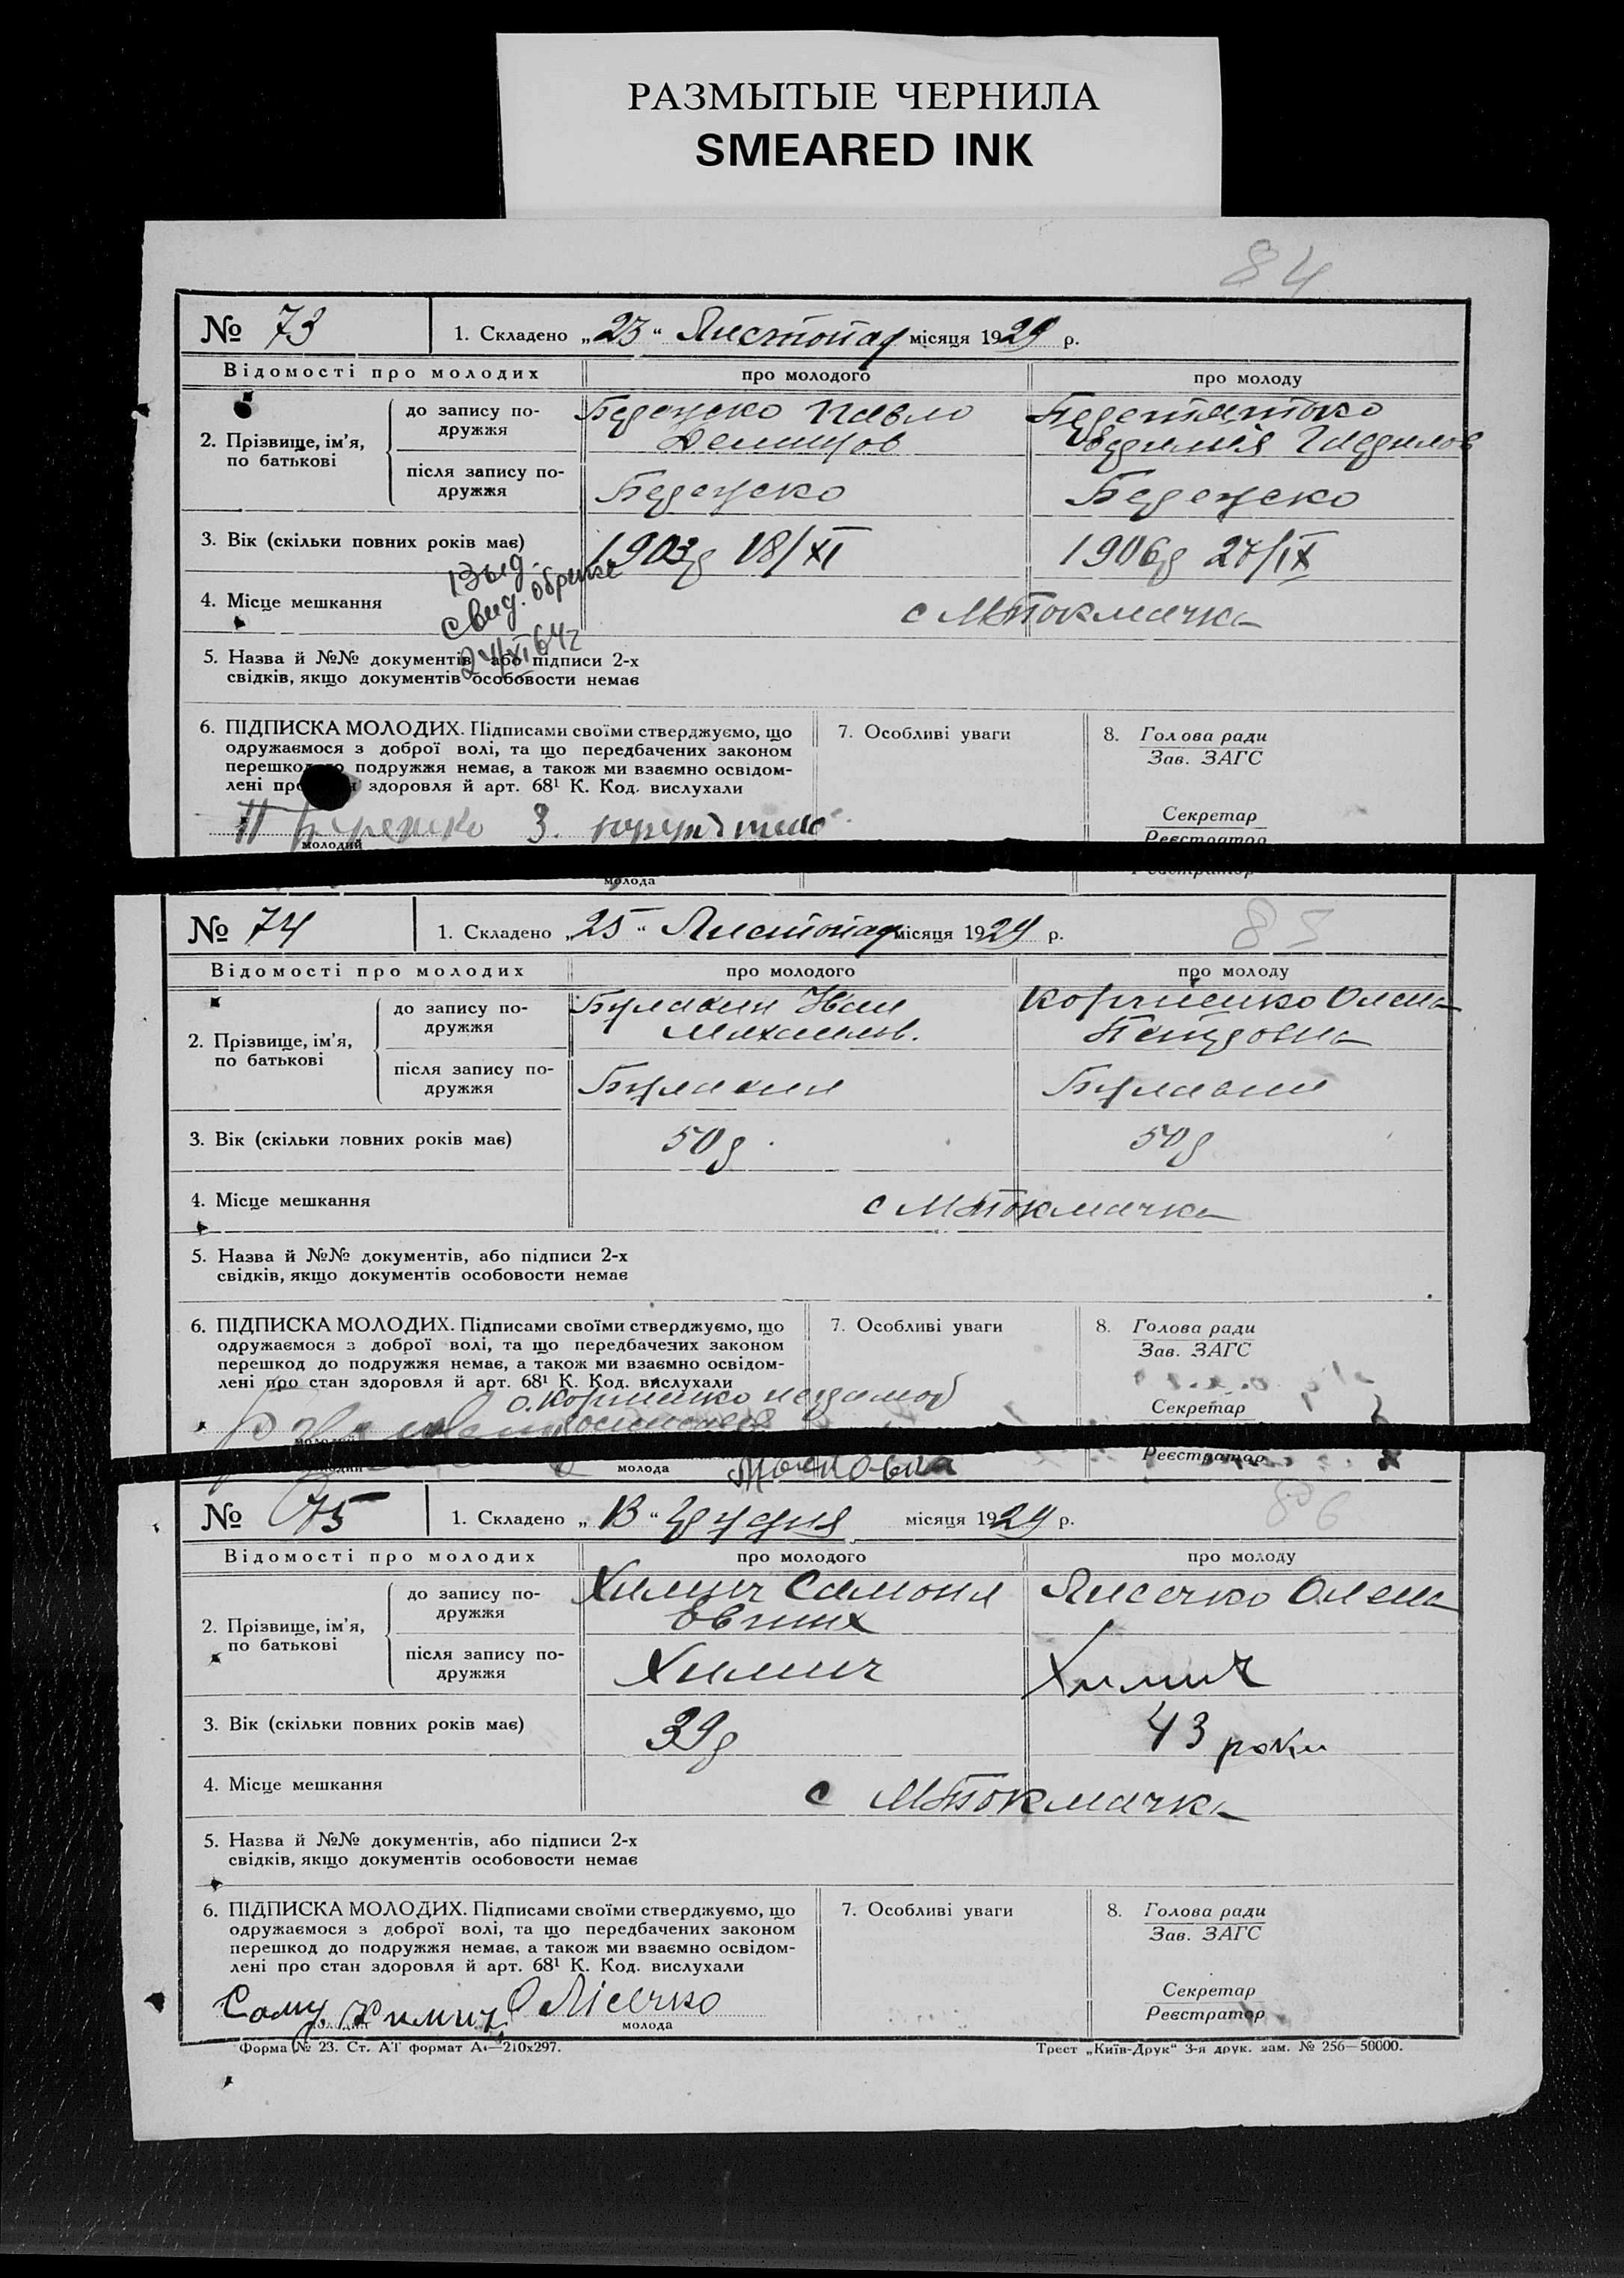 РАЗМЫТЫЕ ЧЕРНИЛА
SMEARED INK
84
№ 73
1. Складено „23“ Листопад місяця 1929 р.
Відомості про молодих
про молодого
про молоду
2. Прізвище, ім'я, по батькові
до запису подружжя
Павло
після запису подружжя
3. Вік (скільки повних років має)
1903 18/XI
1906 27/IX
Выд.
свид. о браке
24/XI 64 г
4. Місце мешкання
с МТокмачка
5. Назва й №№ документів, або підписи 2-х
свідків, якщо документів особовости немає
6. ПІДПИСКА МОЛОДИХ. Підписами своїми стверджуємо, що
одружаємося з доброї волі, та що передбачених законом
перешкод до подружжя немає, а також ми взаємно освідом-
лені про здоровля й арт. 68¹ К. Код. вислухали
7. Особливі уваги
8. Голова ради
Зав. ЗАГС
Секретар
Реєстратор
молодий
молода
№ 74
1. Складено „25“ Листопад місяця 1929 р.
85
Відомості про молодих
про молодого
про молоду
2. Прізвище, ім'я,
по батькові
до запису по-
дружжя
Булавин Іван
Михайлов.
Корниенко Олена
після запису по-
дружжя
Булавин
Булавин
3. Вік (скільки повних років має)
50
50
4. Місце мешкання
с МТокмачка
5. Назва й №№ документів, або підписи 2-х
свідків, якщо документів особовости немає
6. ПІДПИСКА МОЛОДИХ. Підписами своїми стверджуємо, що
одружаємося з доброї волі, та що передбачених законом
перешкод до подружжя немає, а також ми взаємно освідом-
лені про стан здоровля й арт. 68¹ К. Код. вислухали
7. Особливі уваги
8. Голова ради
Зав. ЗАГС
Секретар
Реєстратор
молодий
молода
№ 75
1. Складено „13“ Грудня місяця 1929 р.
86
Відомості про молодих
про молодого
про молоду
2. Прізвище, ім'я,
по батькові
до запису по-
дружжя
Химич Самоил
Лисечко Олена
після запису по-
дружжя
Химич
Химич
3. Вік (скільки повних років має)
39
43 роки
4. Місце мешкання
с МТокмачка
5. Назва й №№ документів, або підписи 2-х
свідків, якщо документів особовости немає
6. ПІДПИСКА МОЛОДИХ. Підписами своїми стверджуємо, що
одружаємося з доброї волі, та що передбачених законом
перешкод до подружжя немає, а також ми взаємно освідом-
лені про стан здоровля й арт. 68¹ К. Код. вислухали
7. Особливі уваги
8. Голова ради
Зав. ЗАГС
Секретар
Реєстратор
Саму. Химич О Лісечко
молодий
молода
Форма № 23. Ст. АТ формат А4—210х297.
Трест „Київ-Друк“ 3-я друк. зам. № 256—50000.